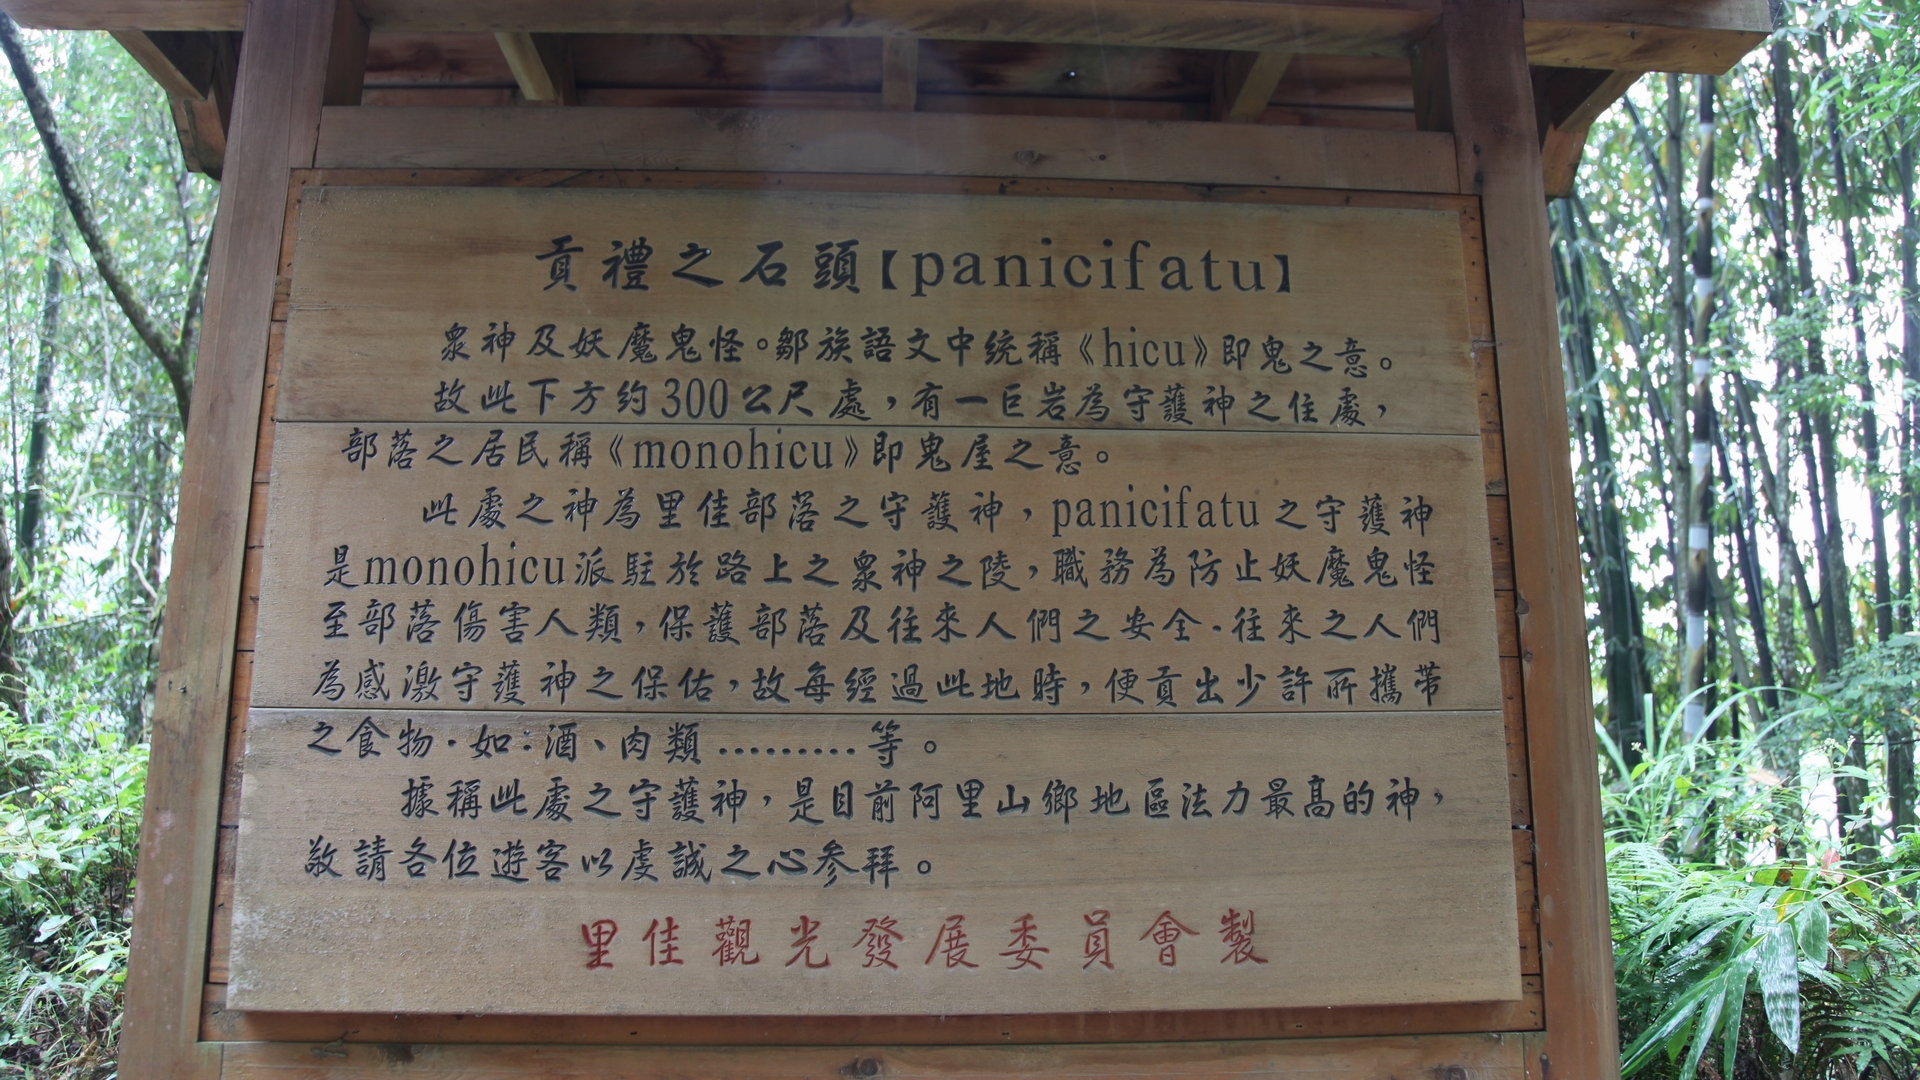 貢禮之石頭【panicifatu】
眾神及妖魔鬼怪。鄒族語文中統稱《hicu》即鬼之意。
故此下方約300公尺處，有一巨岩為守護神之住處，
部落之居民稱《monohicu》即鬼屋之意。
此處之神為里佳部落之守護神，panicifatu之守護神
是monohicu派駐於路上之眾神之陵，職務為防止妖魔鬼怪
至部落傷害人類，保護部落及往來人們之安全．往來之人們
為感激守護神之保佑，故每經過此地時，便貢出少許所攜帶
之食物．如：酒、肉類………等。
據稱此處之守護神，是目前阿里山鄉地區法力最高的神，
敬請各位遊客以虔誠之心參拜。
里佳觀光發展委員會製